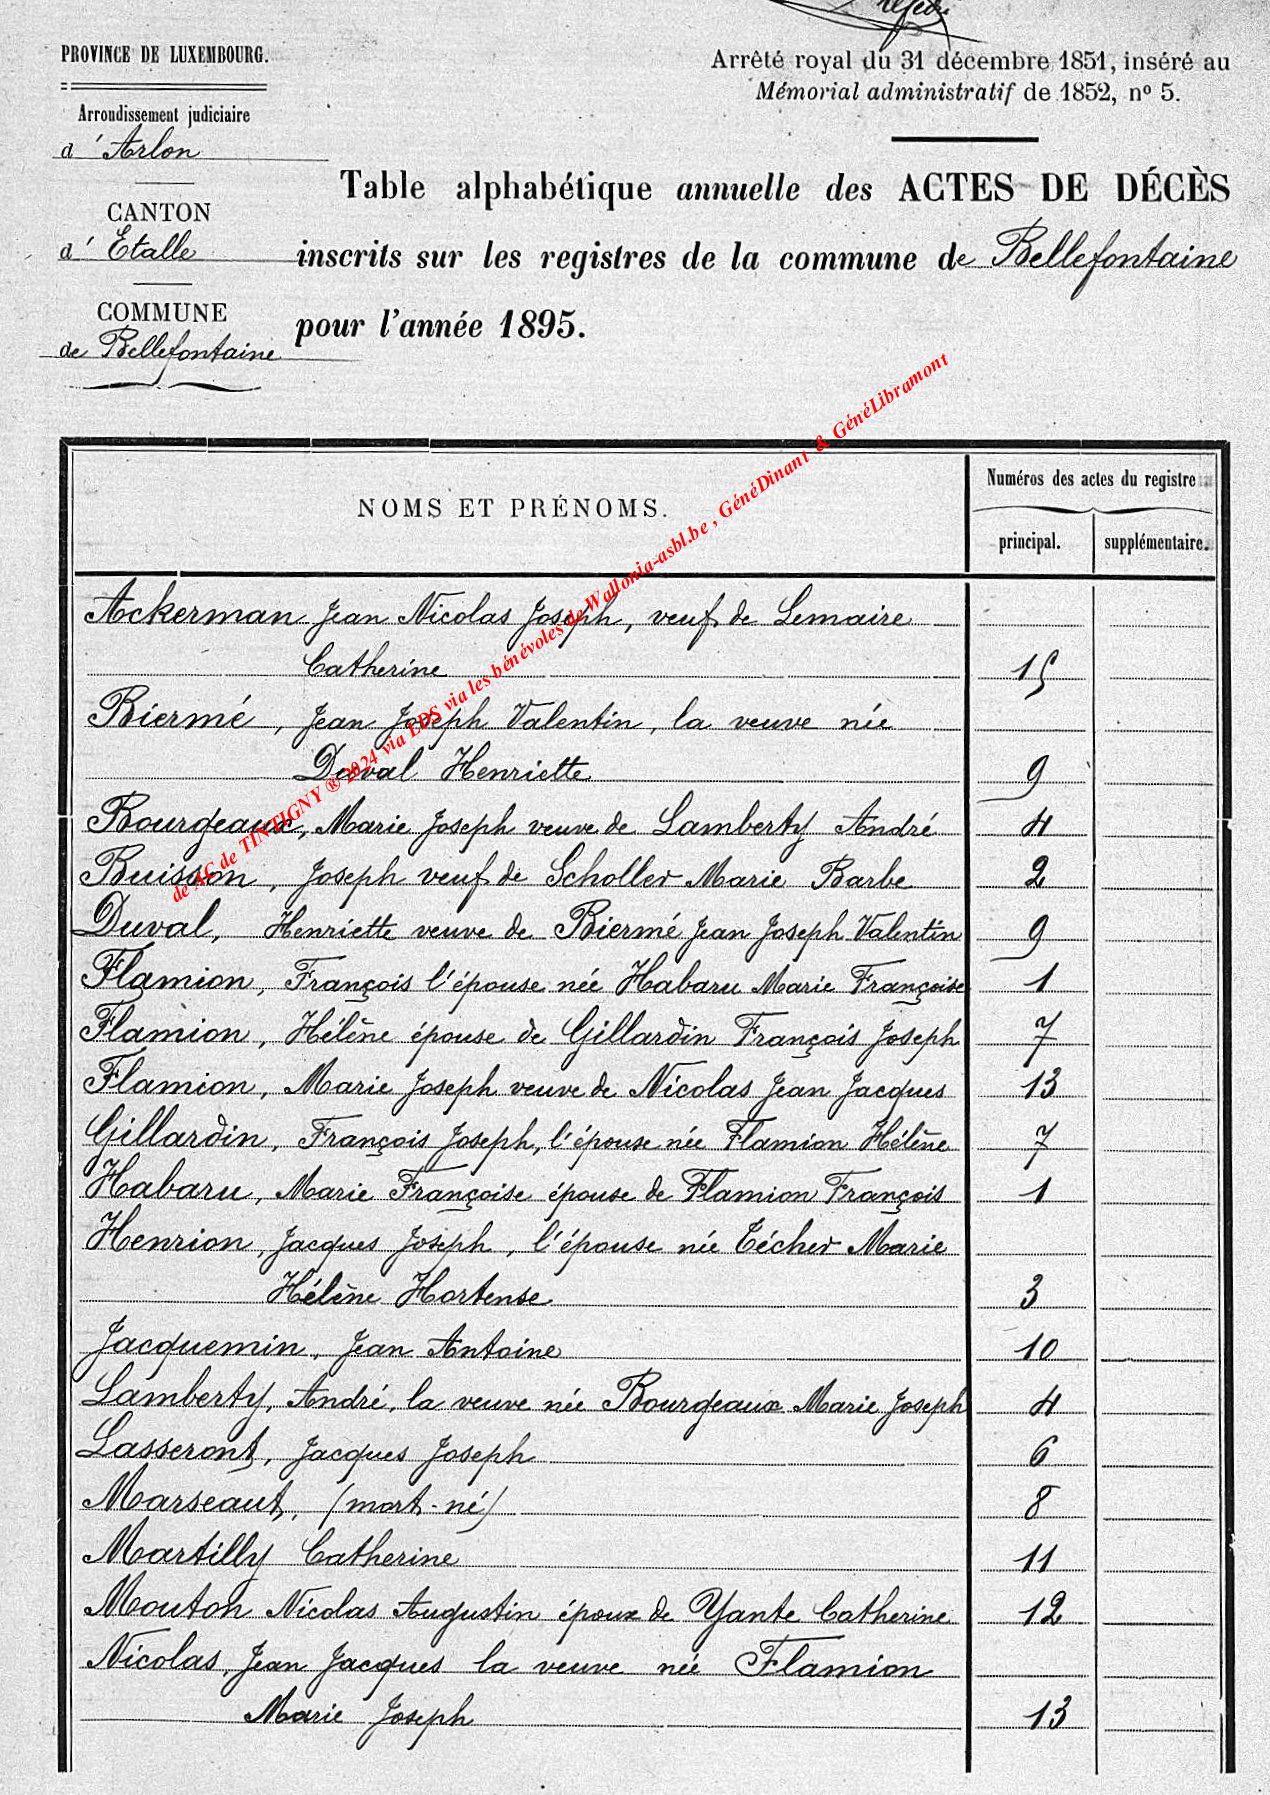 PROVINCE DE LUXEMBOURG.
Arrondissement judiciaire
d'Arlon
CANTON
d'Etalle
COMMUNE
de Bellefontaine
Arrêté royal du 31 décembre 1851, inséré au
Mémorial administratif de 1852, nº 5.
Table alphabétique annuelle des ACTES DE DÉCÈS
inscrits sur les registres de la commune de Bellefontaine
pour l'année 1895.
de AC de TINTIGNY ® 2024 via LDS via les bénévoles de Wallonia-asbl.be , GénéDinant & GénéLibramont
NOMS ET PRÉNOMS.
Numéros des actes du registre
principal.
supplémentaire.
Ackerman Jean Nicolas Joseph, veuf de Lemaire
Catherine 15
Biermé, Jean Joseph Valentin, la veuve née
Duval Henriette 9
Bourgeaux, Marie Joseph veuve de Lamberty André 4
Buisson, Joseph veuf de Scholler Marie Barbe 2
Duval, Henriette veuve de Biermé Jean Joseph Valentin 9
Flamion, François l'épouse née Habaru Marie Françoise 1
Flamion, Hélène épouse de Gillardin François Joseph 7
Flamion, Marie Joseph veuve de Nicolas Jean Jacques 13
Gillardin, François Joseph, l'épouse née Flamion Hélène 7
Habaru, Marie Françoise épouse de Flamion François 1
Henrion, Jacques Joseph, l'épouse née Técher Marie
Hélène Hortense 3
Jacquemin, Jean Antoine 10
Lamberty, André, la veuve née Bourgeaux Marie Joseph 4
Lasseront, Jacques Joseph 6
Marseaut, (mort-né) 8
Martilly Catherine 11
Mouton Nicolas Augustin époux de Yante Catherine 12
Nicolas, Jean Jacques la veuve née Flamion
Marie Joseph 13